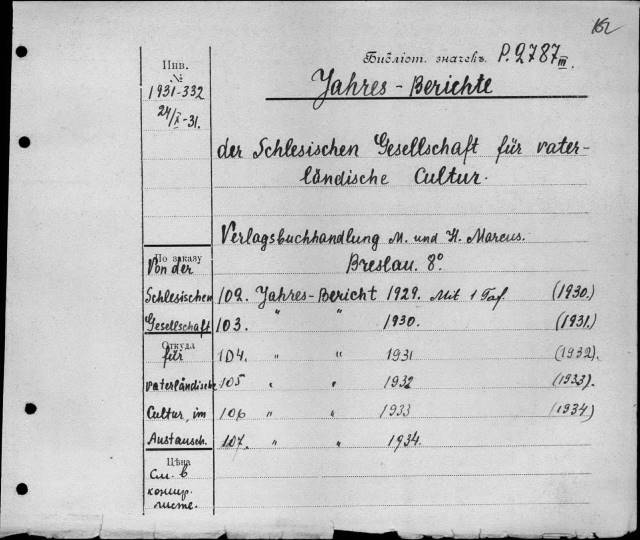 162
Инв.
№
1931-332
24/X-31.
Библіот. значекъ. P.2787 III.
Jahres-Berichte
der Schlesischen Gesellschaft für vater-
ländische Cultur.
Verlagsbuchhandlung M. und H. Marcus.
Breslau. 8°.
По заказу
Von der
Schlesischen
Gesellschaft
Откуда
für
vaterländische
Cultur, im
Austausch.
Цѣна
См. в
контр.
листе.
102. Jahres-Bericht 1929. Mit 1 Taf. (1930.)
103. " " 1930. (1931.)
104. " " 1931 (1932).
105 " " 1932 (1933).
106 " " 1933 (1934)
107. " " 1934.